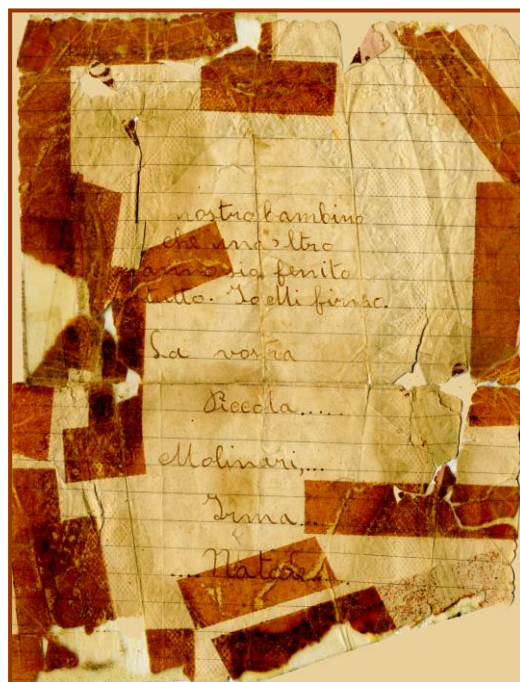 nostro bambino
che una ltro
anno sia fenito
tutto.
La vostra
Piccola......
Molinari,...
Irma...
.... Natale....